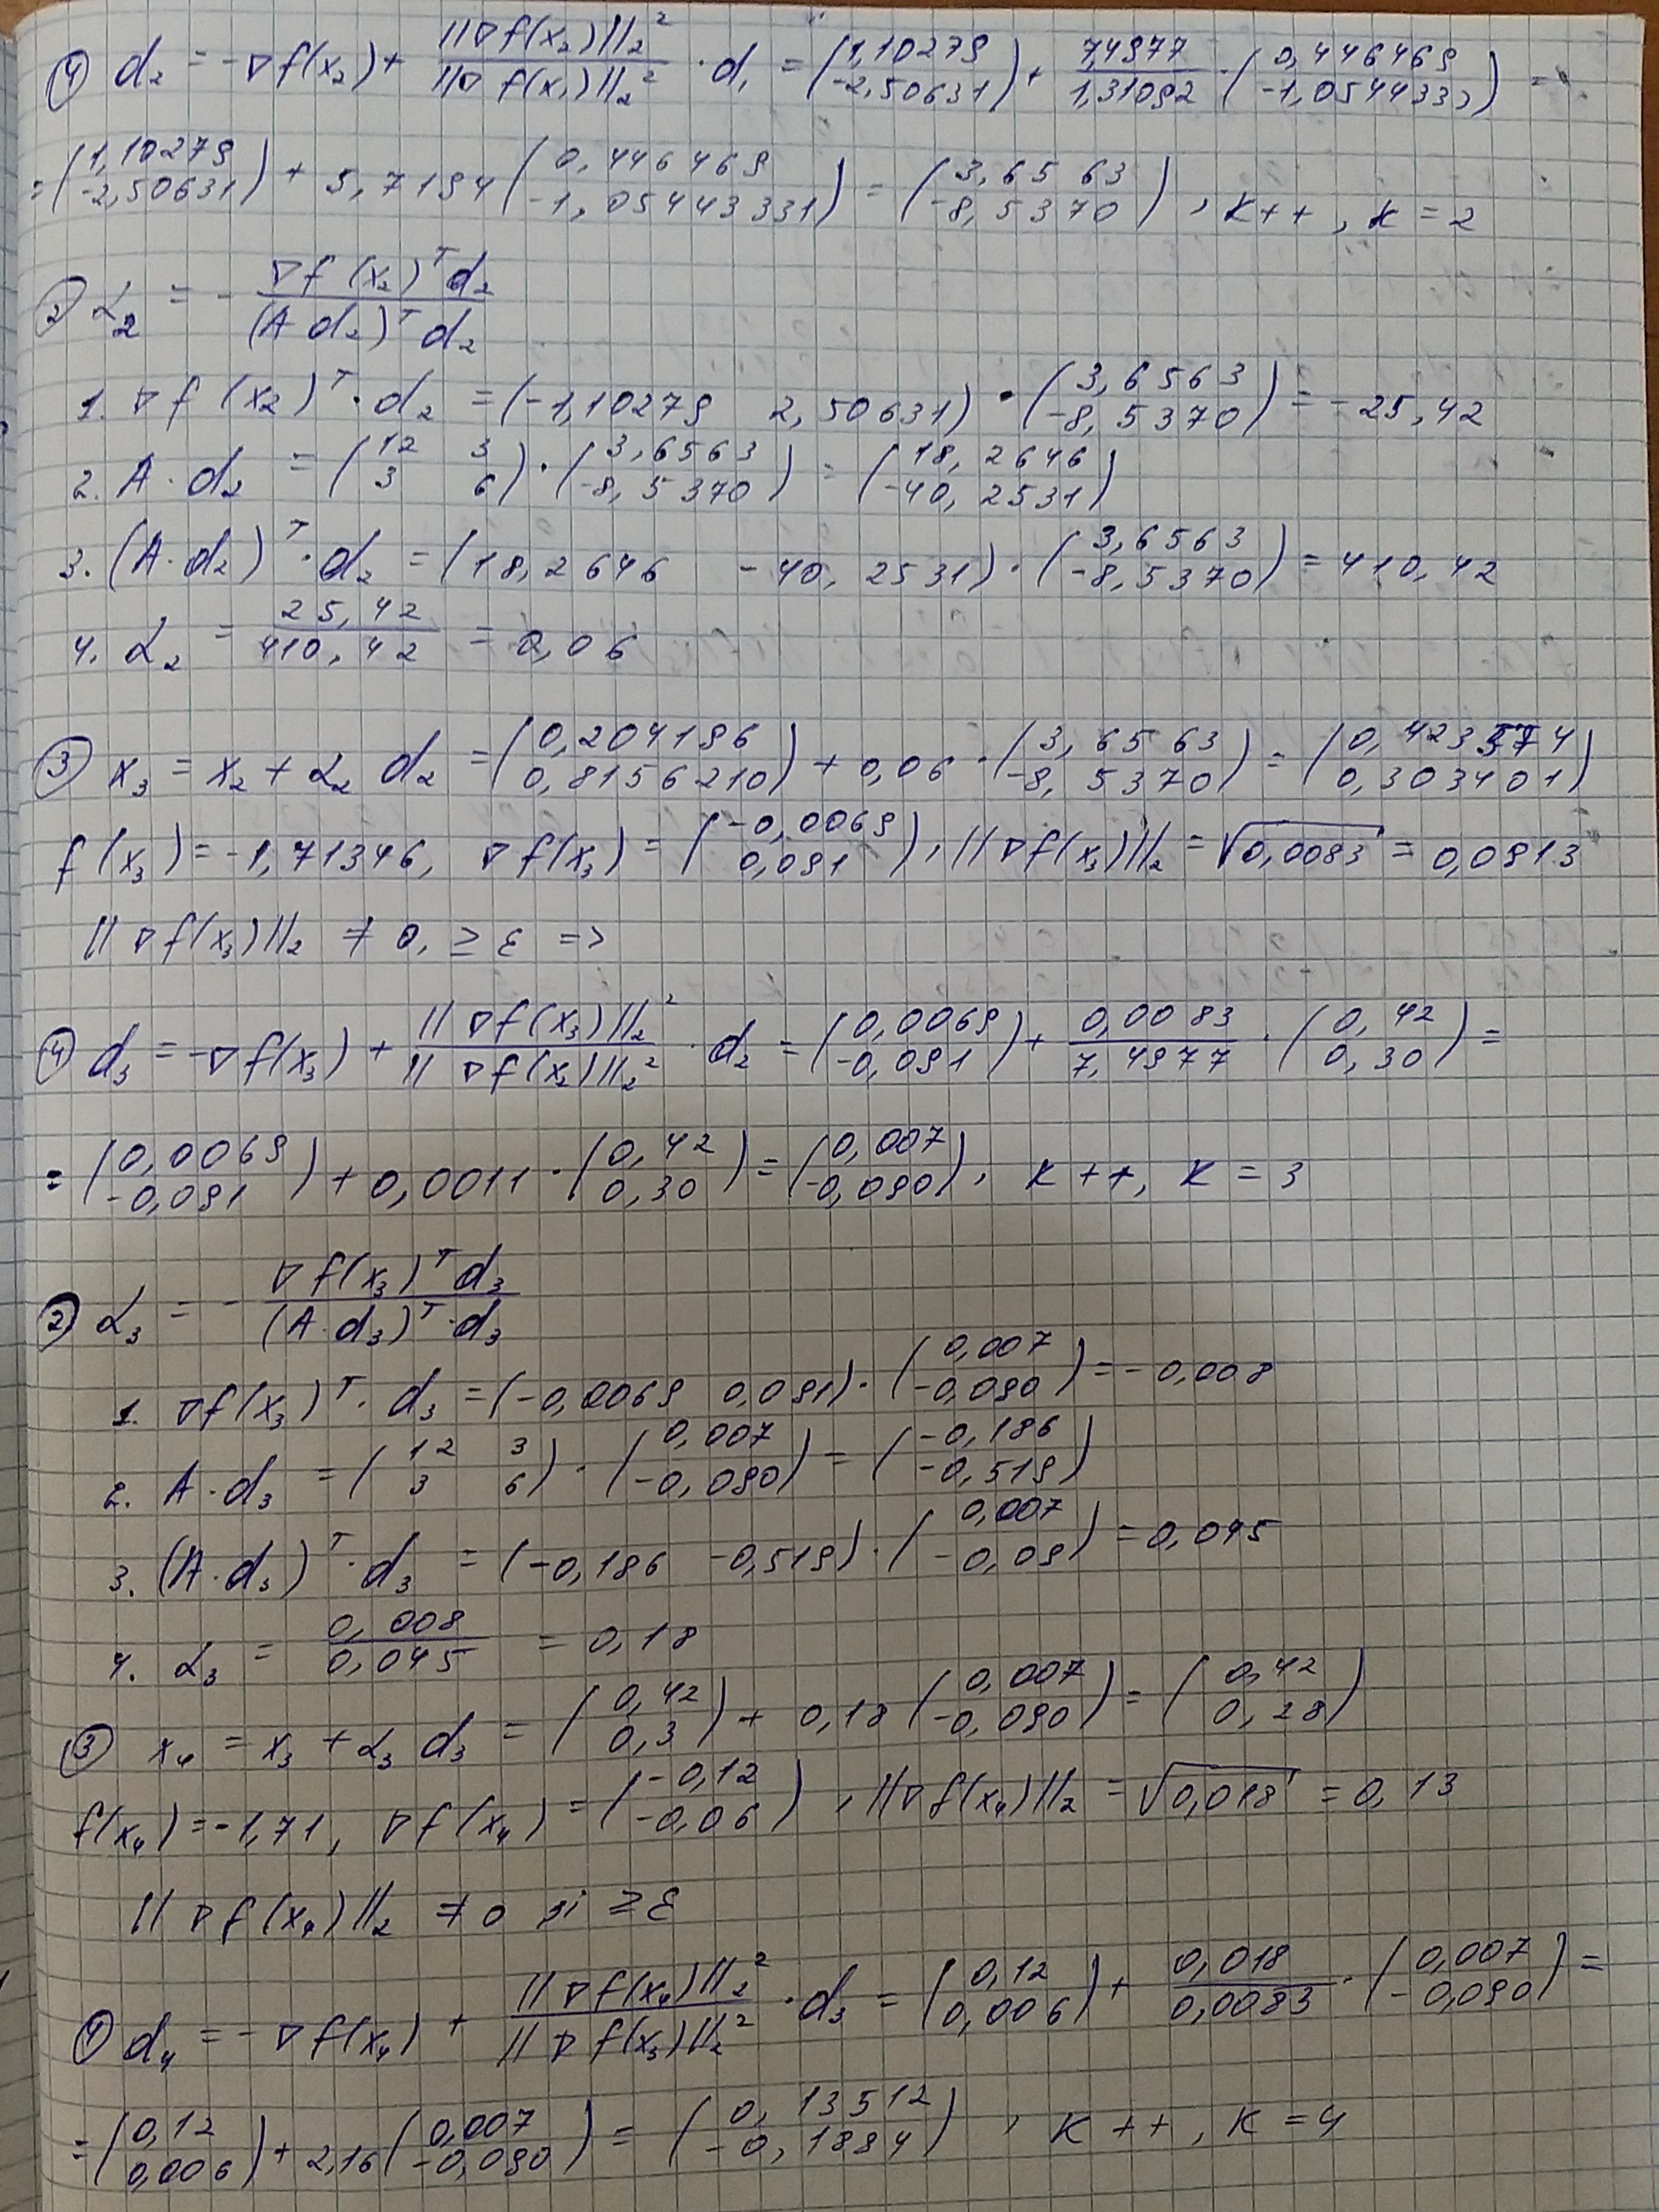 ④ d₂ = -∇f(x₂) + ||∇f(x₂)||₂² / ||∇f(x₁)||₂² · d₁ = (1,10279 ; -2,50631) + 7,4977 / 1,31092 · (0,446469 ; -1,0544333) =
= (1,10279 ; -2,50631) + 5,7194 (0,446469 ; -1,05443331) = (3,6563 ; -8,5370), k++, k = 2
② α₂ = - ∇f(x₂)ᵀd₂ / (A d₂)ᵀ d₂
1. ∇f(x₂)ᵀ · d₂ = (-1,10279 2,50631) · (3,6563 ; -8,5370) = -25,42
2. A · d₂ = (12 3 ; 3 6) · (3,6563 ; -8,5370) = (18,2646 ; -40,2531)
3. (A · d₂)ᵀ · d₂ = (18,2646 -40,2531) · (3,6563 ; -8,5370) = 410,42
4. α₂ = 25,42 / 410,42 = 0,06
③ x₃ = x₂ + α₂ d₂ = (0,204196 ; 0,8156210) + 0,06 · (3,6563 ; -8,5370) = (0,423574 ; 0,303401)
f(x₃) = -1,71346, ∇f(x₃) = (-0,0069 ; 0,091), ||∇f(x₃)||₂ = √0,0083 = 0,0913
||∇f(x₃)||₂ ≠ 0, ≥ ε =>
④ d₃ = -∇f(x₃) + ||∇f(x₃)||₂² / ||∇f(x₂)||₂² · d₂ = (0,0069 ; -0,091) + 0,0083 / 7,4977 · (0,42 ; 0,30) =
= (0,0069 ; -0,091) + 0,0011 · (0,42 ; 0,30) = (0,007 ; -0,090), k++, k = 3
② α₃ = - ∇f(x₃)ᵀd₃ / (A·d₃)ᵀ·d₃
1. ∇f(x₃)ᵀ · d₃ = (-0,0069 0,091) · (0,007 ; -0,090) = -0,008
2. A · d₃ = (12 3 ; 3 6) · (0,007 ; -0,090) = (-0,186 ; -0,519)
3. (A · d₃)ᵀ · d₃ = (-0,186 -0,519) · (0,007 ; -0,09) = 0,045
4. α₃ = 0,008 / 0,045 = 0,18
③ x₄ = x₃ + α₃ d₃ = (0,42 ; 0,3) + 0,18 (0,007 ; -0,090) = (0,42 ; 0,28)
f(x₄) = -1,71, ∇f(x₄) = (-0,12 ; -0,06), ||∇f(x₄)||₂ = √0,018 = 0,13
||∇f(x₄)||₂ ≠ 0 și ≥ ε
④ d₄ = -∇f(x₄) + ||∇f(x₄)||₂² / ||∇f(x₃)||₂² · d₃ = (0,12 ; 0,006) + 0,018 / 0,0083 · (0,007 ; -0,090) =
= (0,12 ; 0,006) + 2,16 (0,007 ; -0,090) = (0,13512 ; -0,1884), k++, k = 4